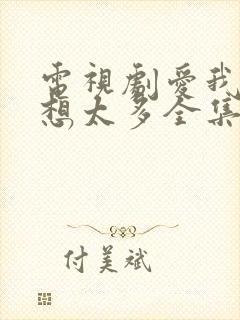 電視劇愛我
想太多全集
付美斌